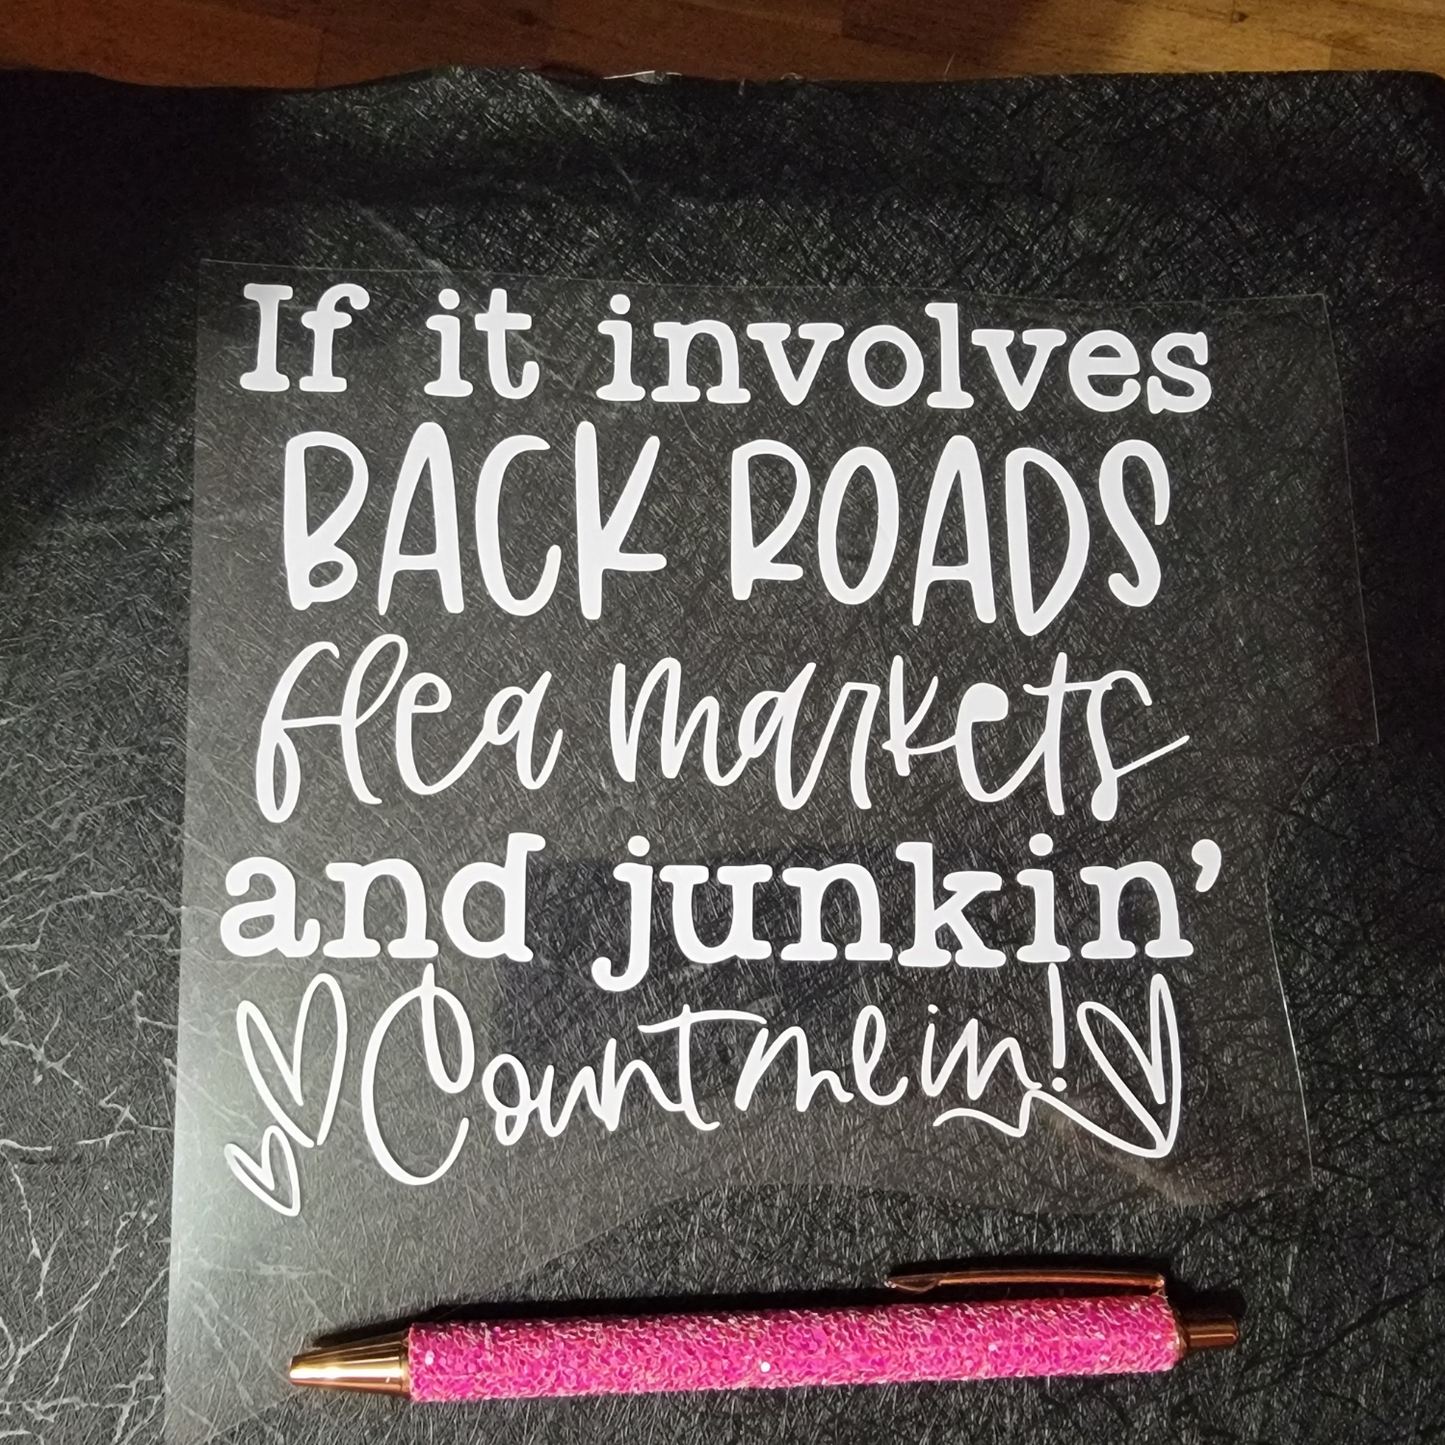 If it involves
BACK ROADS
flea markets
and junkin'
Count me in!